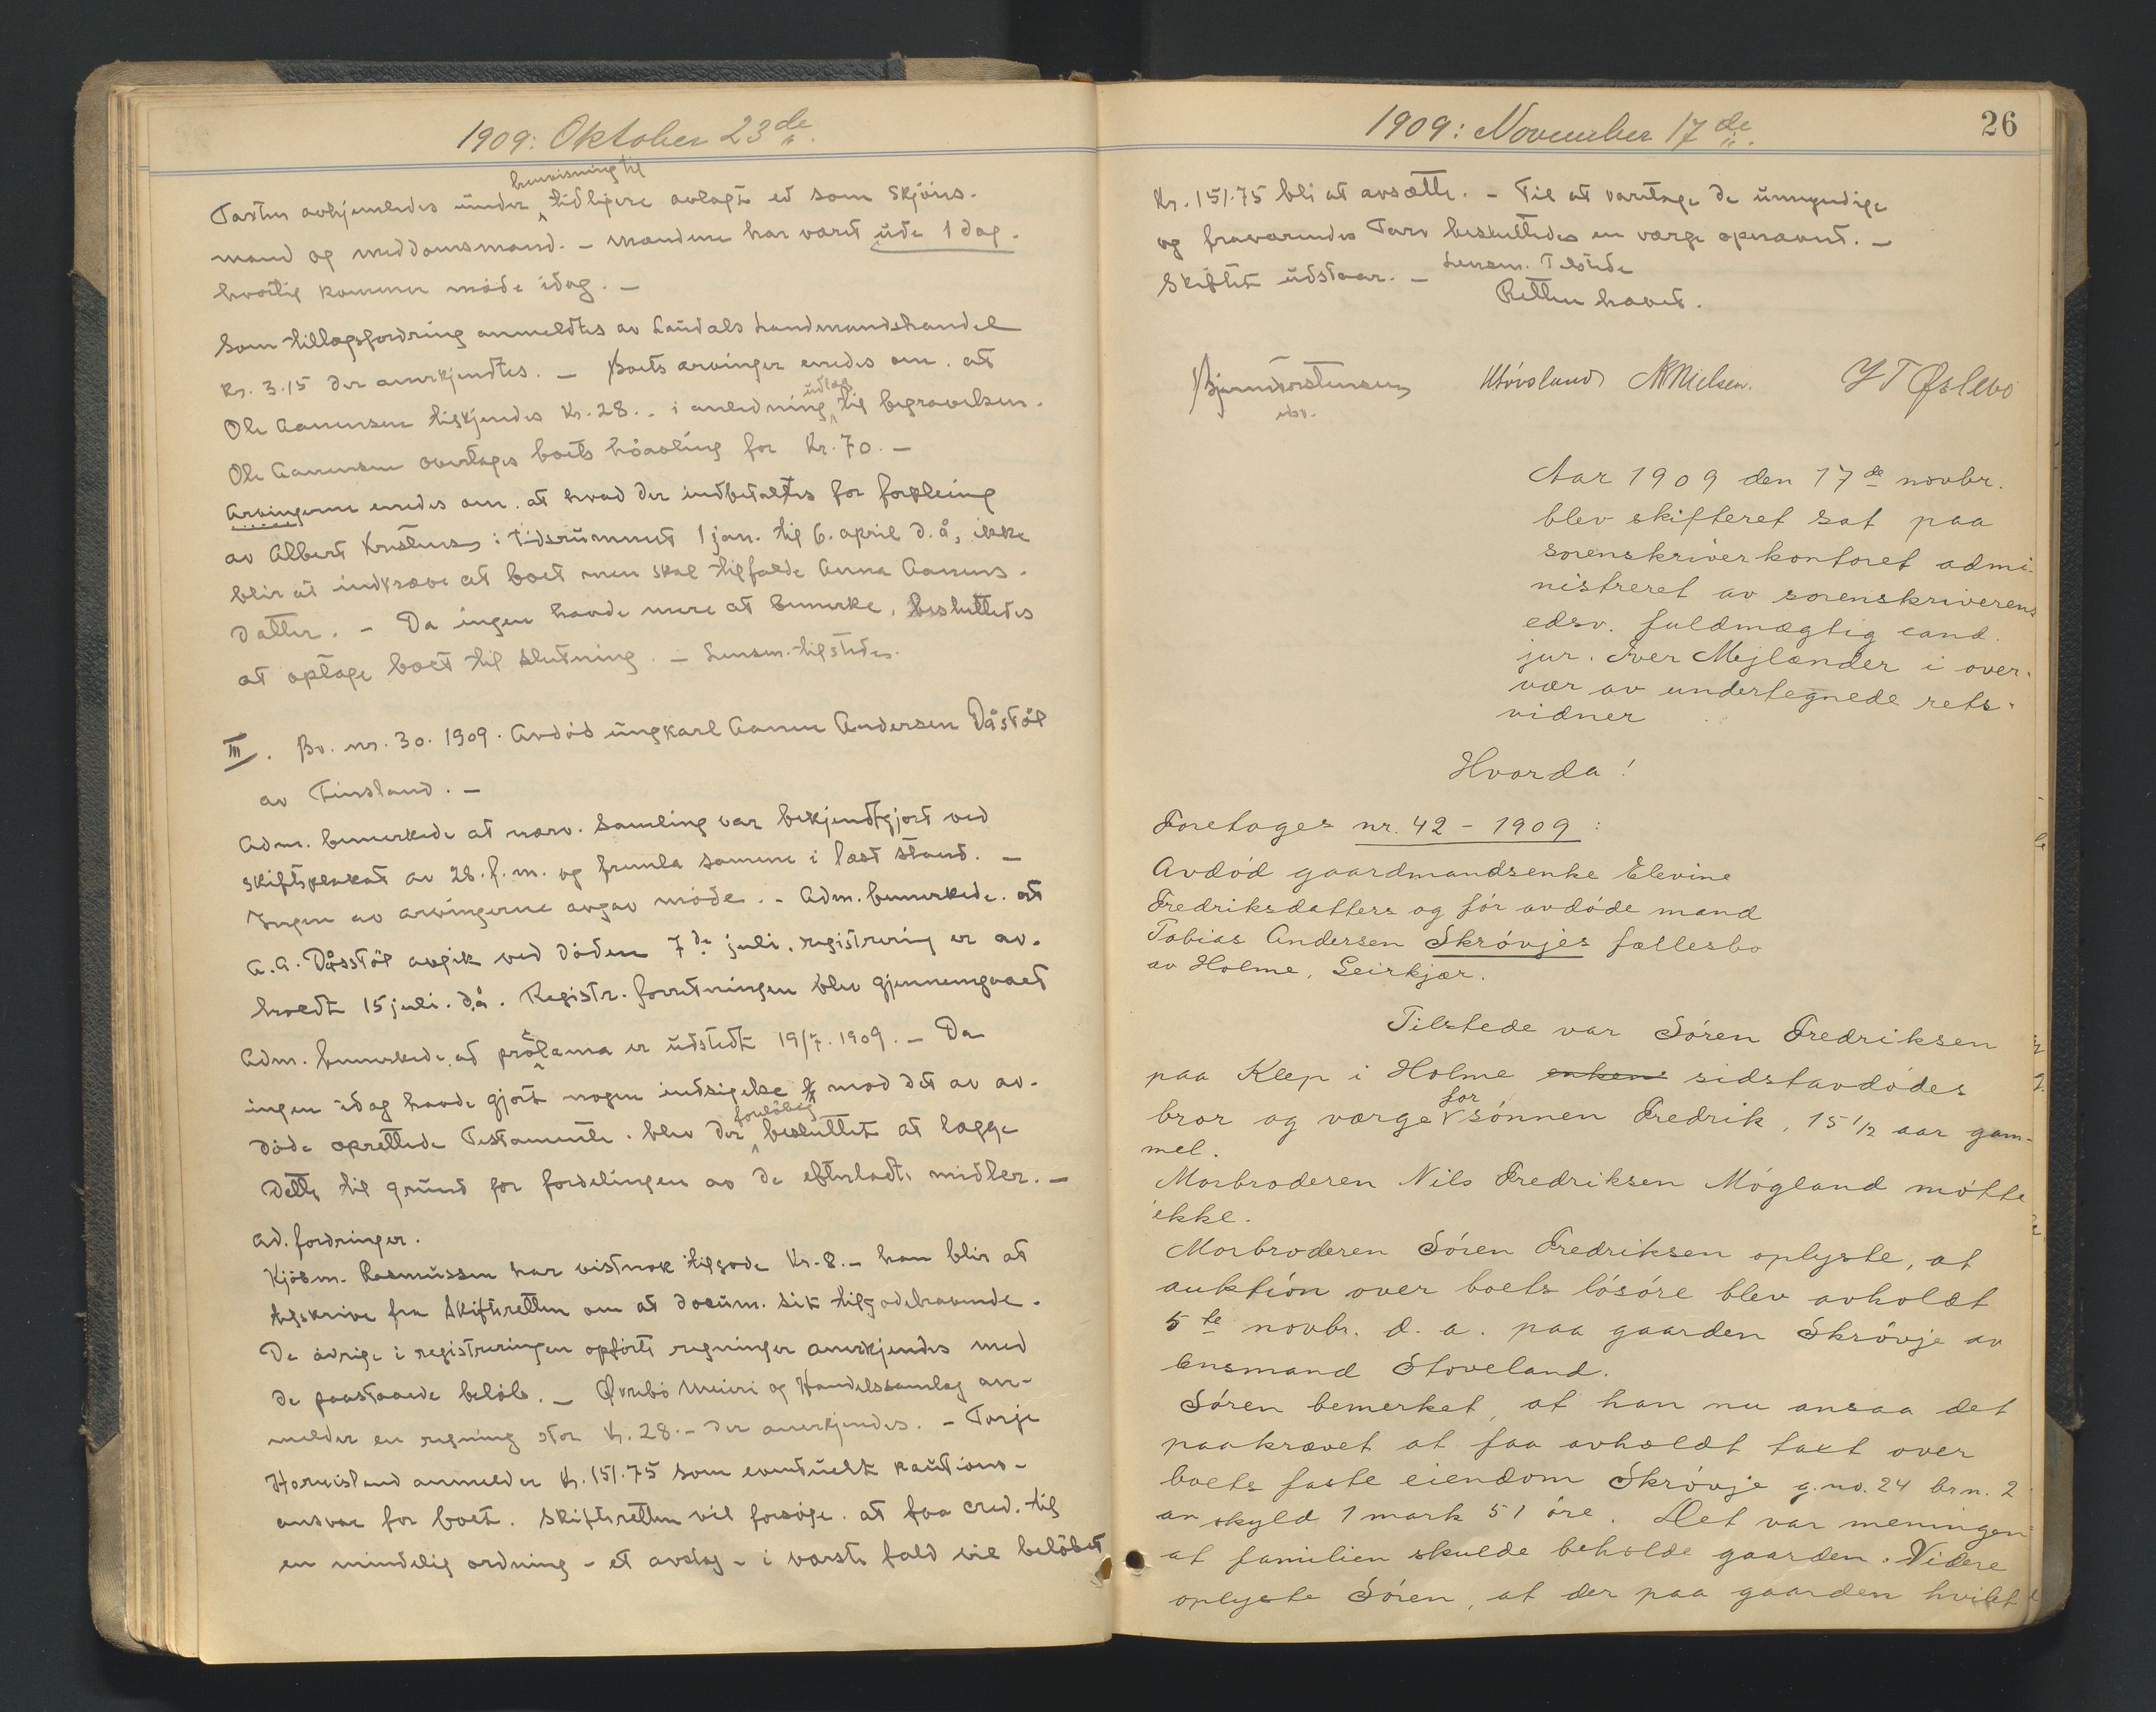 1909: Oktober 23de
henvisning til
Taxten avhjemledes under tidligere avlagt ed som skjöns-
mand og meddomsmand. - Mændene har været ude 1 dag.
hvortil kommer møde idag. -
Som tillægsfordring anmeldtes av Laudals Landmandshandel
Kr. 3.15 der anerkjendtes. - Boets arvinger enedes om, at
udlæg
Ole Aanensen tilkjendes Kr. 28.- i anledning til begravelsen.
Ole Aanensen overtages boets höavling for Kr. 70. -
Arvingerne enedes om, at hvad der indbetaltes for forpleing
av Albert i tidsrummet 1 jan. til 6. april d.å, ikke
blir at indkræve at boet men skal tilfalde Anna Aanens-
datter. - Da ingen havde mere at bemerke, besluttedes
at optage boet til slutning. - Lensm. tilstede.
III. Bv. nr. 30. 1909. Avdöd ungkarl Aanen Andersen Dåstöl
av Finsland. -
Adm. bemerkede at nærv. samling var bekjendtgjort ved
skifteplakat av 28. f. m. og fremla samme i læst stand. -
Ingen av arvingerne avgav möde. - Adm. bemerkede, at
A. A. Dåsstöl avgik ved döden 7de juli, registrering er av-
holdt 15 juli. d.å. Registr. forretningen blev gjennemgaaet
Adm. bemerkede, at proklama er udstedt 19/7. 1909. - Da
ingen idag havde gjort nogen indsigelse mod det av av-
foreløbig
döde oprettede Testamente, blev der besluttet at lægge
dette til grund for fordelingen av de efterladte midler. -
Ad. fordringer.
Kjöbm. Rasmussen har vistnok tilgode Kr. 8.- han blir at
tilskrive fra Skifteretten om at docum. sit tilgodehavende.
De övrige i registreringen opförte regninger anerkjendes med
de paastaaede belöb. - Øvrebö Meieri og Handelssamlag an-
melder en regning stor Kr. 28.- der anerkjendes. - Terje
anmelder Kr. 151.75 som eventuelt kautions-
ansvar for boet. Skifteretten vil forsöge, at faa cred. til
en mindelig ordning - et avslag - i værste fald vil belöbet
1909: November 17de
26
Kr. 151.75 bli at avsætte. - Til at varetage de umyndige
og fraværendes Tarv besluttedes en værge opnævnt. -
Skiftet udstaar. - Lensm. Tilstede
Retten hævet.
N Nielsen. Y T Øslebø
edsv.
Aar 1909 den 17de novbr.
blev skifteret sat paa
sorenskriverkontoret admi-
nistreret av sorenskriverens
edsv. fuldmægtig cand.
jur. Iver Mejlænder i over-
vær av undertegnede rets-
vidner
Hvorda!
Foretages nr. 42 - 1909:
Avdöd gaardmandsenke Elevine
Fredriksdatters og för avdöde mand
Tobias Andersen Skrövjes fællesbo
av Holme, Leirkjær.
Tilstede var Sören Fredriksen
paa Klep i Holme enkens sidstavdödes
for
bror og værge sönnen Fredrik, 15 1/2 aar gam-
mel.
Morbroderen Nils Fredriksen Mögland mötte
ikke.
Morbroderen Sören Fredriksen oplyste, at
auktion over boets lösöre blev avholdt
5te novbr. d. a. paa gaarden Skrövje av
lensmand Stoveland.
Sören bemerket, at han nu ansaa det
paakrævet at faa avholdt takt over
boets faste eiendom Skrövje g.no. 24 brn. 2
av skyld 1 mark 51 öre. Det var meningen
at familien skulde beholde gaarden. Videre
oplyste Sören, at der paa gaarden hvilet